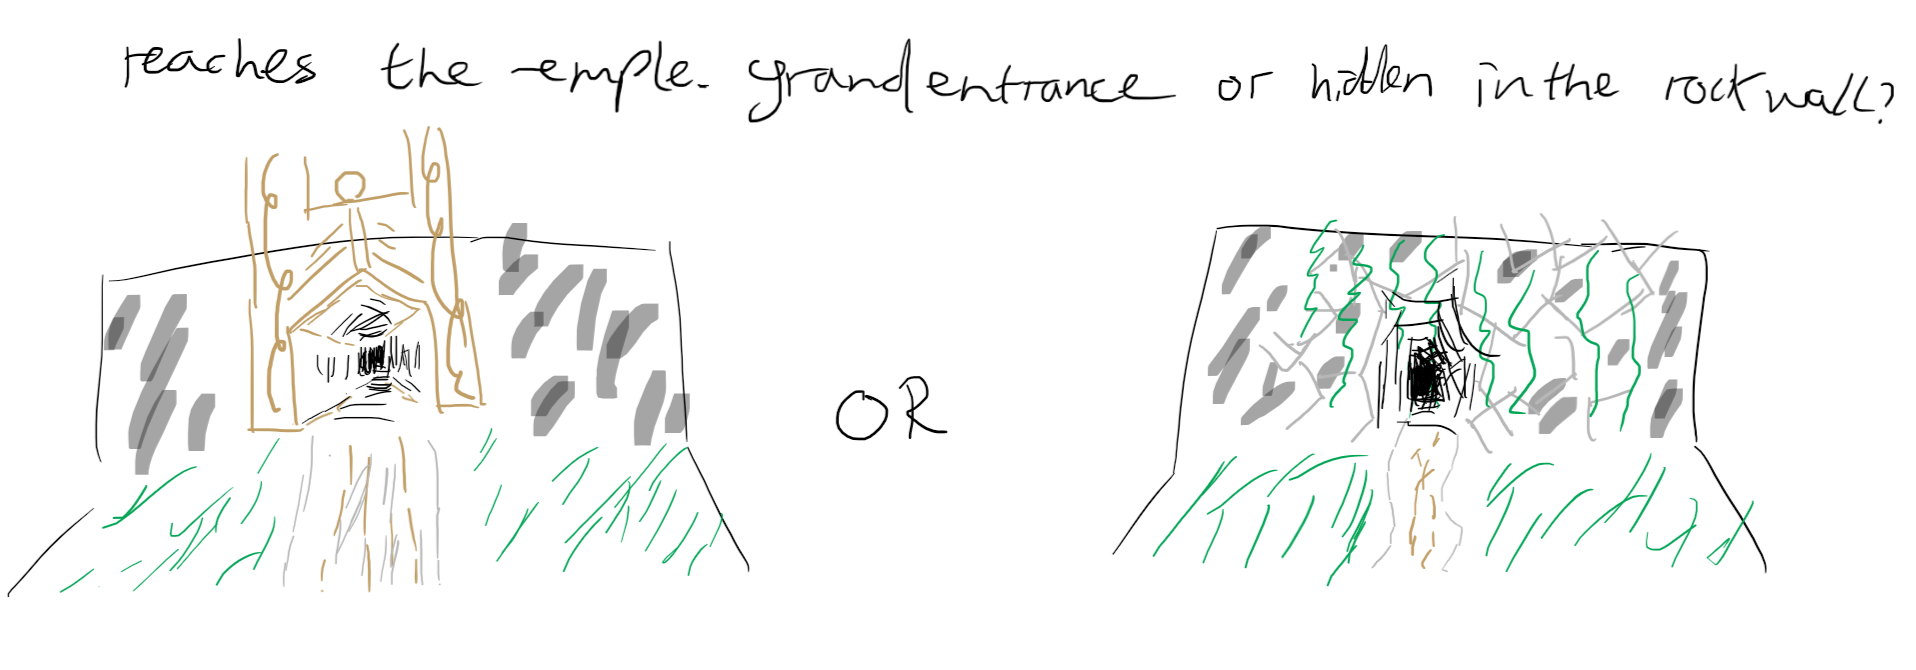 reaches the temple. grand entrance or hidden in the rock wall?
OR